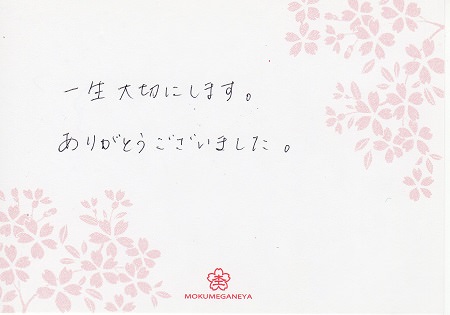 一生大切にします。
ありがとうございました。
MOKUMEGANEYA